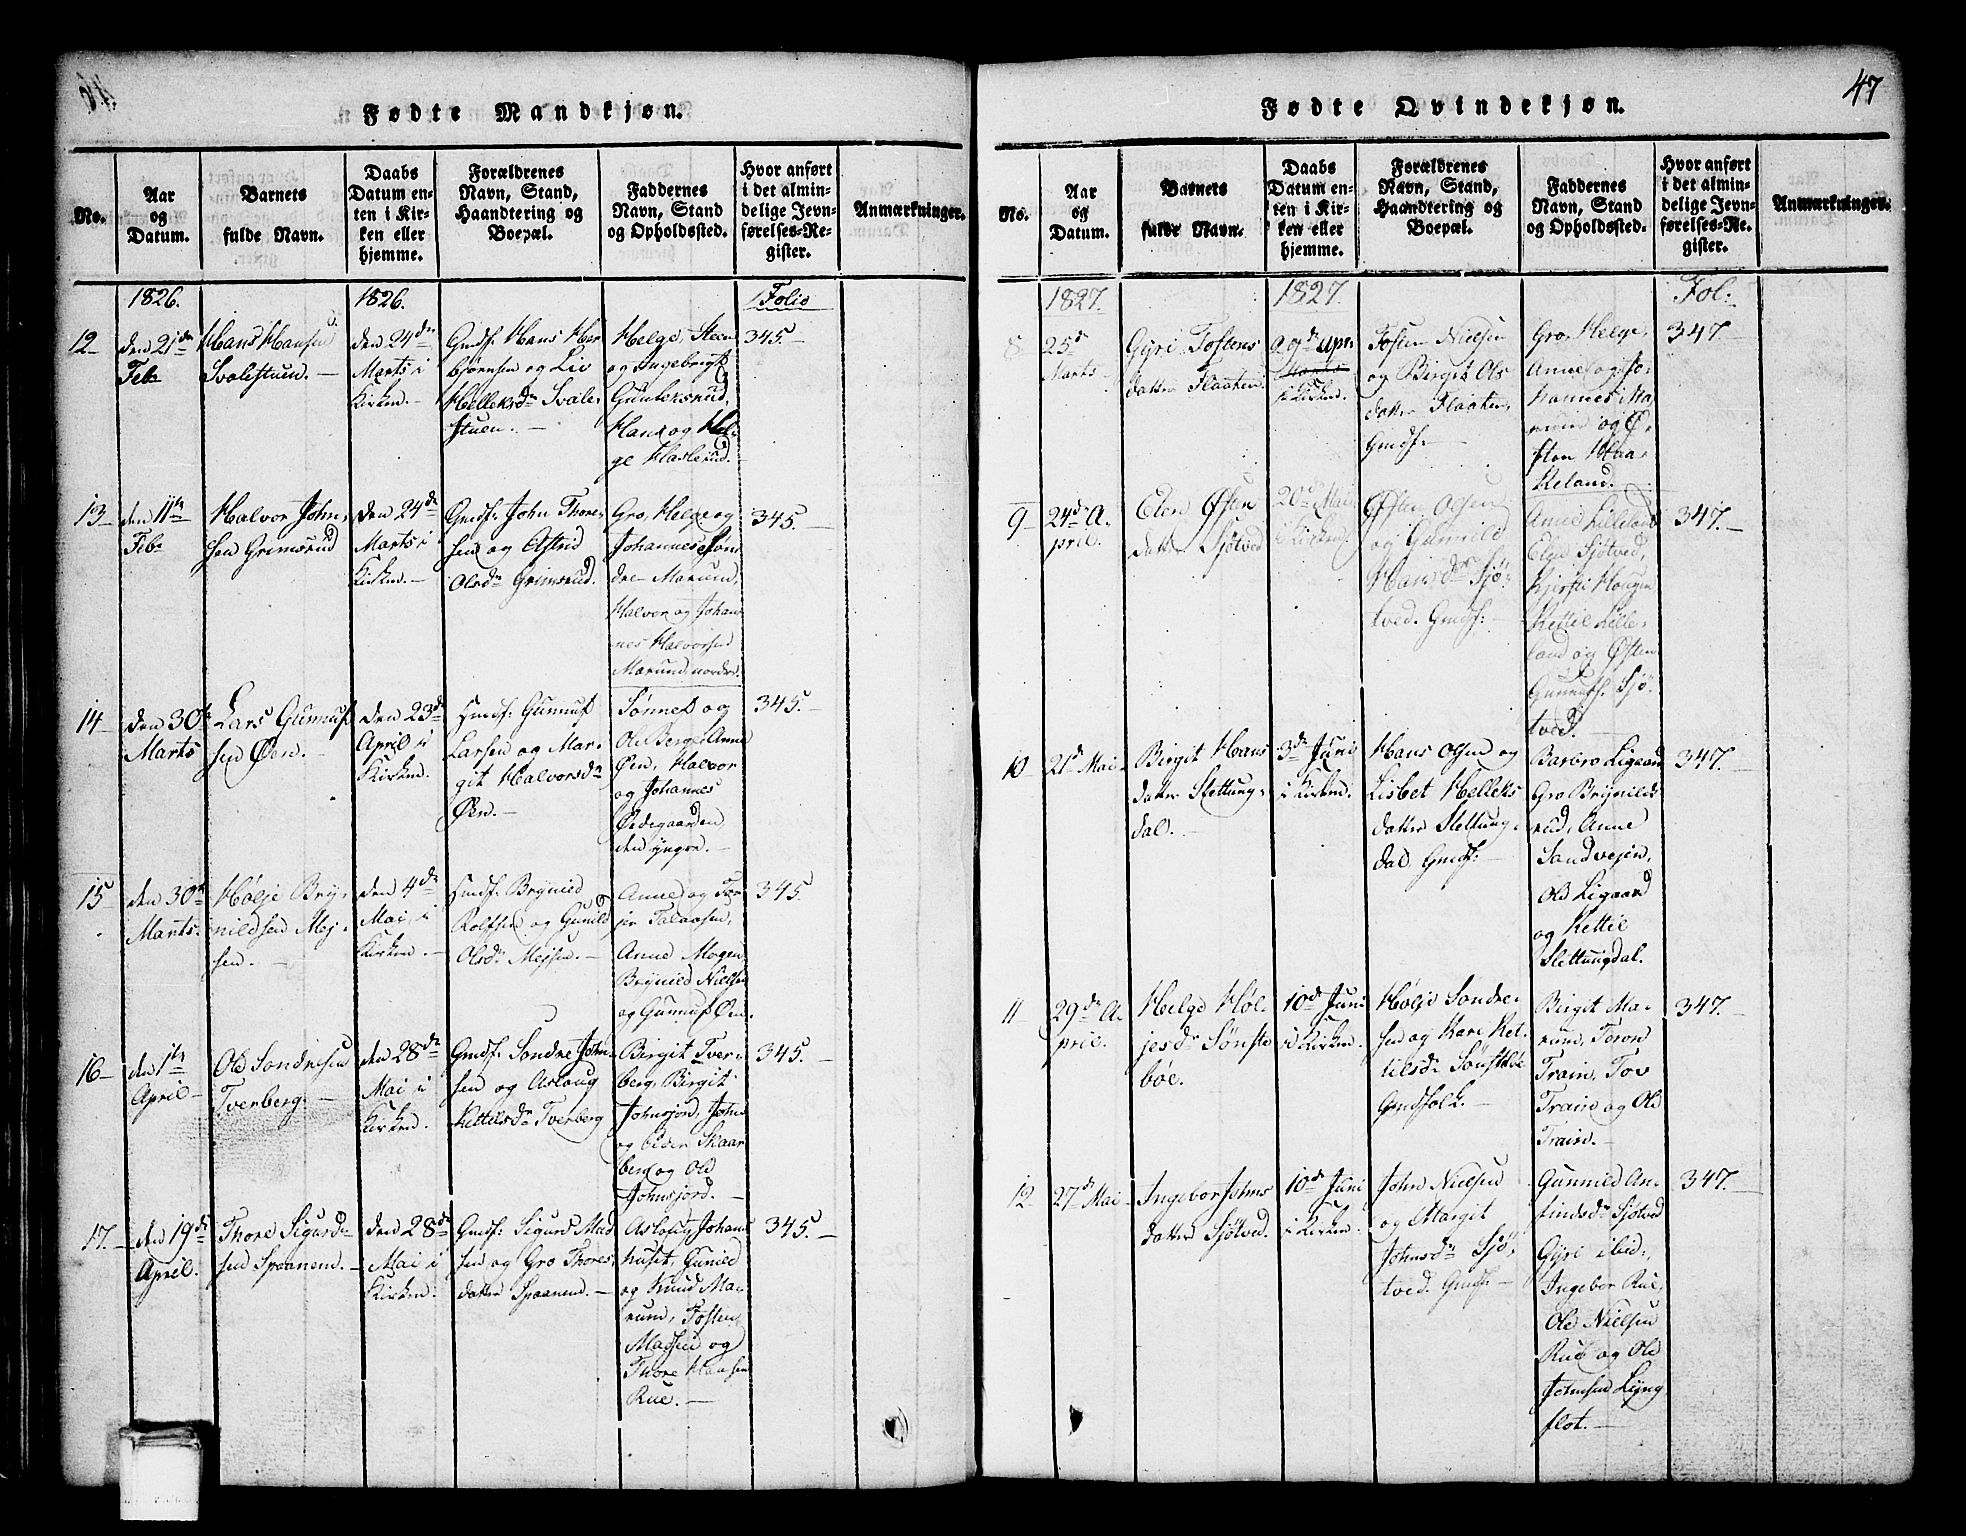 Fødte Mandkjøn.
No.
Aar
og
Datum.
Barnets
fulde Navn.
Daabs
Datum en-
ten i Kir-
ken eller
hjemme.
Forældrenes
Navn, Stand,
Haandtering og
Boepæl.
Faddernes
Navn, Stand
og Opholdssted.
Hvor anført
i det almin-
delige Jevn-
førelses-Re-
gister.
Anmærkninger.
1826.
1826.
Folio
12
den 21de
Feb
Hans Hansen
Svalestuen.
den 24de
Marts i
Kirken.
Gmdf: Hans Her
bjørnsen og Liv
Helleksdr Svale-
stuen.
Helge, Steen
og Ingebrigt
Gunleksrud,
Hans og Hel-
ge Haslerud.
345.
13
den 11te
Feb
Halvor John-
sen Grimsrud
den 24de
Marts i
Kirken.
Gmdf: John Thore-
sen og Astrid
Olsdr Grimsrud.
Gro, Helge og
Johannes Søn-
dre Marum,
Halvor og Johan-
nes Halvorsen
Marum nordre.
345.
14
den 30te
Marts
Lars Gunnuf
sen Øen.
den 23de
April i
Kirken.
Hmdf: Gunnuf
Larsen og Mar-
git Halvorsdr
Øen.
Sønnef og
Ole Berge, Anne
Øen, Halvor
og Johannes
Ødegaarden
den yngre.
345.
15
den 30te
Marts.
Hølje Bry-
nildsen Mej-
sen.
den 4de
Mai i
Kirken.
Hmdf: Brynild
Rolfsen og Gunild
Olsdr Mejsen.
Anne og Tor-
jer Talaasen,
Anne Mogen
Brynild Nielsen
og Gunnuf Øen.
345.
16
den 1te
April
Ole Sondresen
Tverberg.
den 28de
Mai i
Kirken.
Gmdf: Sondre John-
sen og Aslaug
Kettilsdr Tverberg
Birgit Tver-
berg, Birgit
Johnsjord, John
og Eder Skaar
berg og Ole
Johnsjord.
345.
17.
den 19de
April.
Thore Sigurd-
sen Spaanem.
den 28de
Mai i
Kirken.
Gmdf: Sigurd Mad
sen og Gro Thores-
datter Spaanem.
Aslaug Johans
huset, Gunild
og Knud Ma-
rum, Tosten
Madsen og
Thore Hansen
Rue.
345.
47
Fødte Qvindekjøn.
No.
Aar
og
Datum.
Barnets
fulde Navn.
Daabs
Datum en-
ten i Kir-
ken eller
hjemme.
Forældrenes
Navn, Stand,
Haandtering og
Boepæl.
Faddernes
Navn, Stand
og Opholdssted.
Hvor anført
i det almin-
delige Jevn-
førelses-Re-
gister.
Anmærkninger.
1827.
1827.
Fol:
8
25d
Marts
Gyri Tostens
datter Flaaten.
29d Apr:
Marts
i Kirken.
Tosten Nielsen
og Birgit Ols
datter Flaaten,
Gmdf:
Gro, Helge,
Anne og Jo-
hannes Ma
rum og Ø-
sten Haa-
keland.
347
9
24d A-
pril.
Elen Østen
datter Sjøtved
20d Mai
i Kirken.
Østen Olsen
og Gunild
Hansdr Sjø-
tved. Gmdf:
Anne Lilleland
Elen Sjøtved,
Kjersti Haugen
Kettil Lille-
land og Østen
Gunnufs. Sjø-
tved.
347.
10
21d Mai
Birgit Hans
datter Slettung-
dal.
3d Juni
i Kirken.
Hans Olsen og
Lisbet Helleks
datter Slettung-
dal Gmdf:
Barbro Ligaard
Gro Brynilds
rud, Anne
Sandvejen,
Ole Ligaard
og Kettil
Slettungdal.
347.
11
29de A-
pril.
Helge Høl-
jesdr Sønste
bøe.
10d Juni
i Kirken.
Hølje Sondre-
sen og Kari Ket-
tilsdr Sønstebøe
Gmdfolk.
Birgit Ma-
rum, Toron
Traim, Tov
Traim og Ole
Traim.
347.
12
27d Mai
Ingebor Johns
datter Sjøtved.
10d Juni
i Kirken.
John Nielsen
og Margit
Johnsdr Sjø-
tved. Gmdf:
Gunnild An-
findsdr Sjøtved
Gyri ibid:,
Ingebor Rue,
Ole Nielsen
Rue og Ole
Johnsen Lyng
flot.
347.